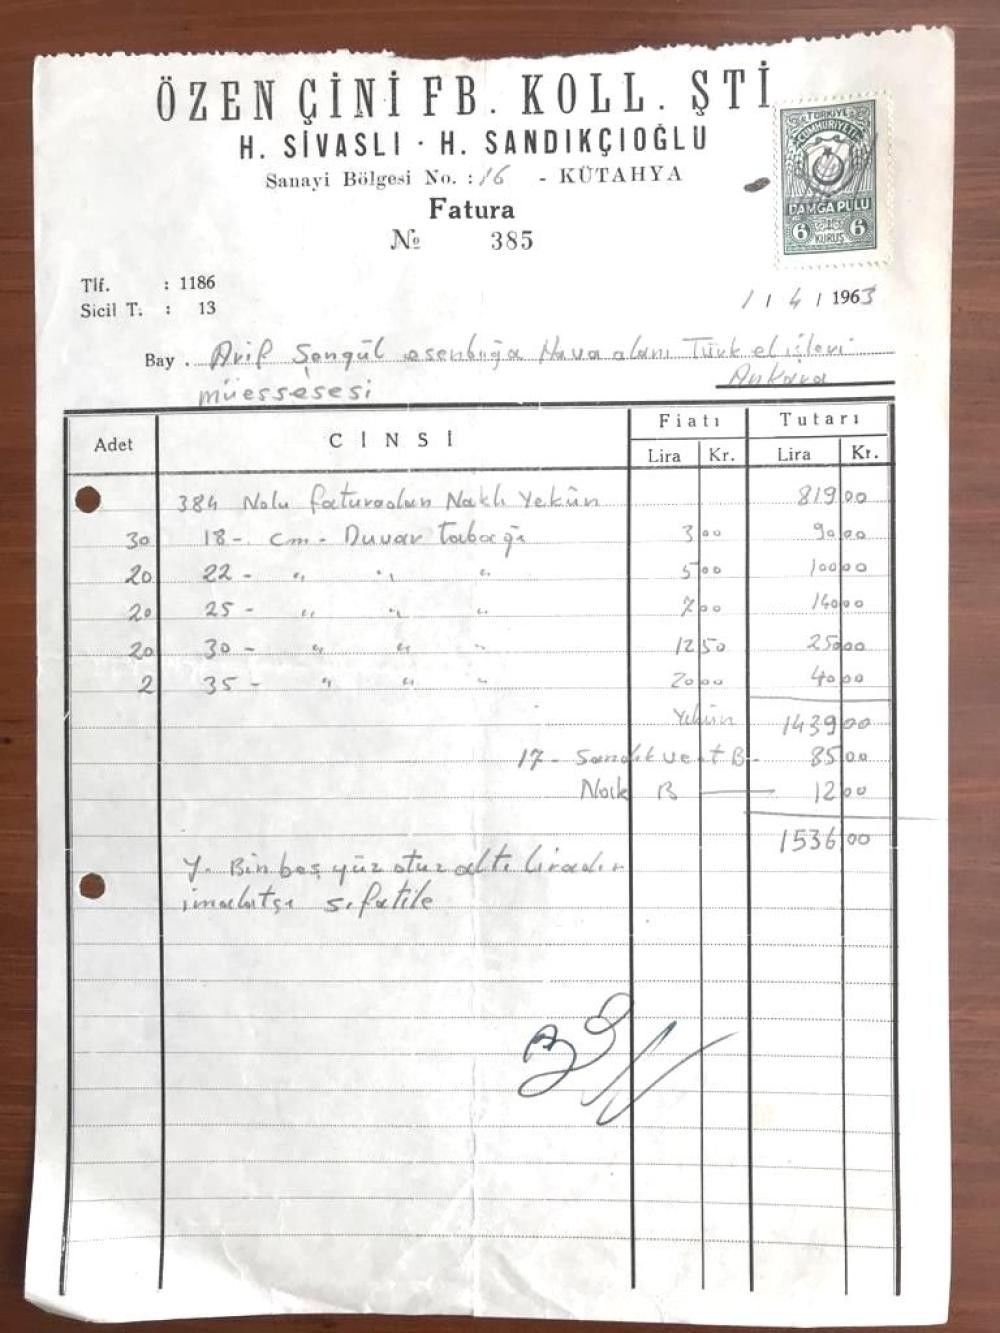 ÖZEN ÇİNİ FB. KOLL. ŞTİ
H. SİVASLI · H. SANDIKÇIOĞLU
Sanayi Bölgesi No. : 16 - KÜTAHYA
Fatura
№ 385
TÜRKİYE
CUMHURİYETİ
DAMGA PULU
6 KURUŞ 6
Tlf. : 1186
Sicil T. : 13
1 / 4 / 1963
Bay . Arif Şengül esenboğa Hava alanı Türk el işleri
müessesesi Ankara
Adet CİNSİ Fiatı Tutarı
Lira Kr. Lira Kr.
384 Nolu faturadan Nakli Yekün 819 00
30 18 - cm - Duvar tabağı 3 00 90 00
20 22 - " " " 5 00 100 00
20 25 - " " " 7 00 140 00
20 30 - " " " 12 50 250 00
2 35 - " " " 20 00 40 00
Yekün 1439 00
17 - Sandık ve B - 85 00
Nak B 12 00
1536 00
Y. Bin beş yüz otuz altı liradır
imalatçı sıfatile